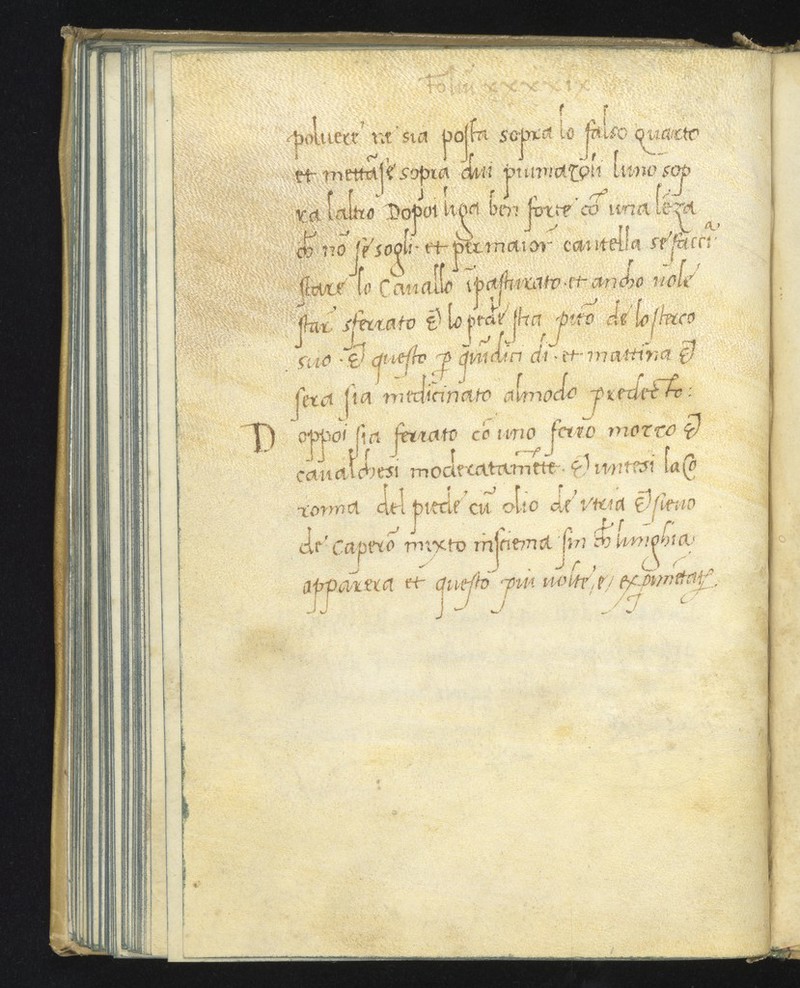 Foliũ xxxxix
poluere ne sia posta sopra lo falso quarto
et mettãse sopra dui piumaçoli luno sop
ra laltro Dopoi liga ben forte cõ una lẽza
ch̃ nõ se sogli · et per maior cautella se facci
stare lo Cauallo ĩpasturato · et ancho uole
star sferrato & lo pede stia pieõ de lo sterco
suo · & questo p quĩdici di · et mattina &
sera sia medicinato almodo predecto :
Doppoi sia ferrato cõ uno ferro mozzo &
caualchesi moderatamẽte · & untesi la Co
ronna del piede cũ olio de vria & sieuo
de caperõ mixto insciema sin ch̃ lunghia
apparera et questo piu uolte / e / expimẽtat